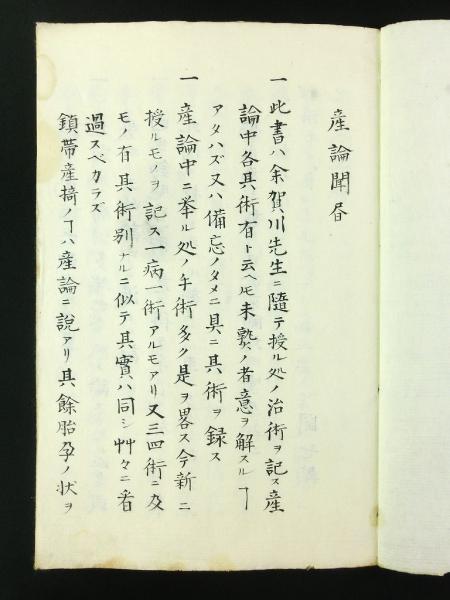 産論聞昏
一此書ハ余賀川先生ニ隨テ授ル処ノ治術ヲ記ス産
論中各具術有ト云ヘ𪜈未熟ノ者意ヲ解スルヿ
アタハズ又ハ備忘ノタメニ具ニ其術ヲ録ス
一産論中ニ挙ル処ノ手術多ク是ヲ畧ス今新ニ
授ルモノヲ記ス一病一術アルモアリ又三四術ニ及
モノ有其術別ナルニ似テ其實ハ同シ艸々ニ看
過スベカラズ
鎮帯産椅ノヿハ産論ニ説アリ其餘胎孕ノ状ヲ